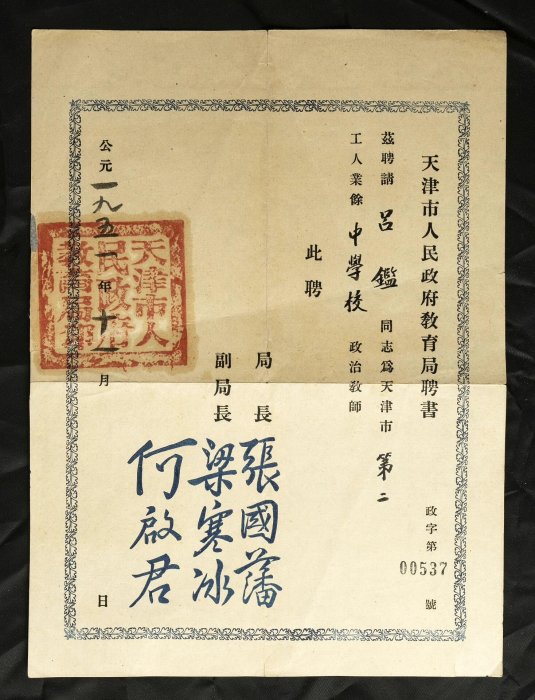 天津市人民政府教育局聘書
政字第00537號
茲聘請呂鑑同志爲天津市第二
工人業餘中學校政治教師
此聘
局長張國藩
副局長梁寒冰
何啟君
公元一九五一年十一月日
天津市人
民政府
教育局